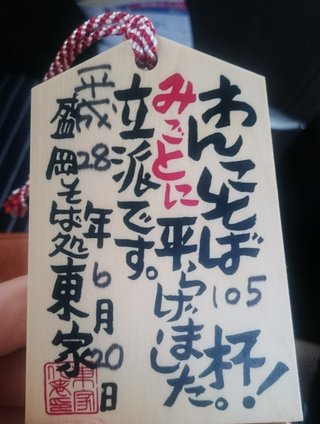 わんこそば105杯！
みごとに平らげました。
立派です。
平成28年6月20日
盛岡そば処東家